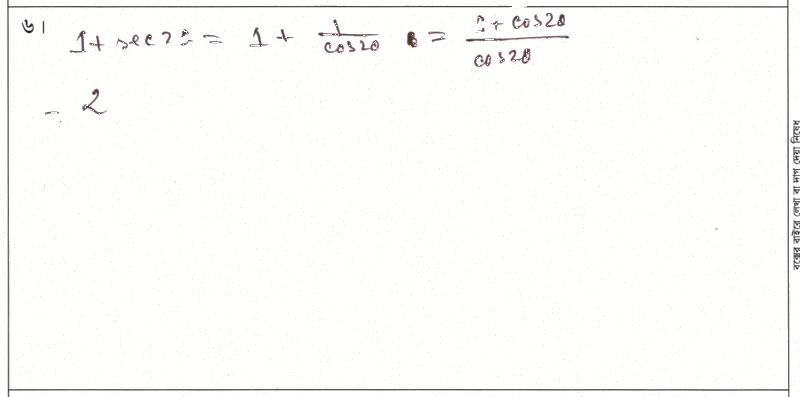 ৬। 1 + sec 2θ = 1 + 1/cos2θ = 1 + cos2θ/cos2θ
= 2
বক্সের বাইরে লেখা বা দাগ দেয়া নিষেধ